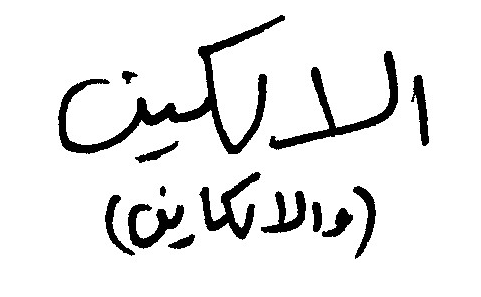 الالكين
(والالكاين)